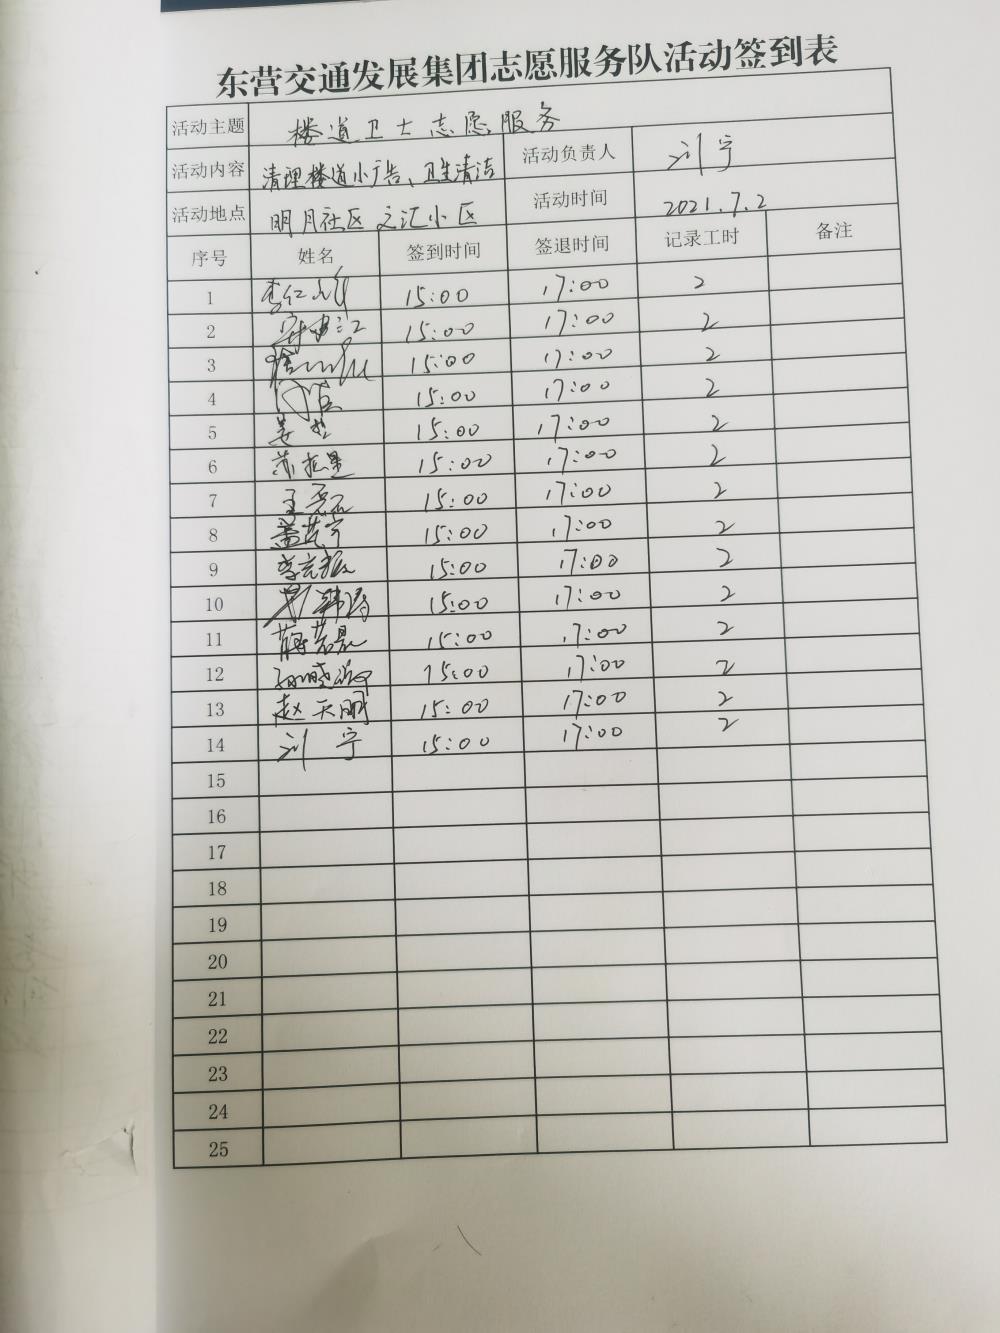 东营交通发展集团志愿服务队活动签到表
活动主题 楼道卫士志愿服务
活动内容 清理楼道小广告、卫生清洁 活动负责人 刘宁
活动地点 明月社区 文汇小区 活动时间 2021.7.2
序号 姓名 签到时间 签退时间 记录工时 备注
1 15:00 17:00 2
2 15:00 17:00 2
3 15:00 17:00 2
4 15:00 17:00 2
5 15:00 17:00 2
6 15:00 17:00 2
7 王磊 15:00 17:00 2
8 15:00 17:00 2
9 15:00 17:00 2
10 15:00 17:00 2
11 15:00 17:00 2
12 15:00 17:00 2
13 赵天明 15:00 17:00 2
14 刘宁 15:00 17:00 2
15
16
17
18
19
20
21
22
23
24
25